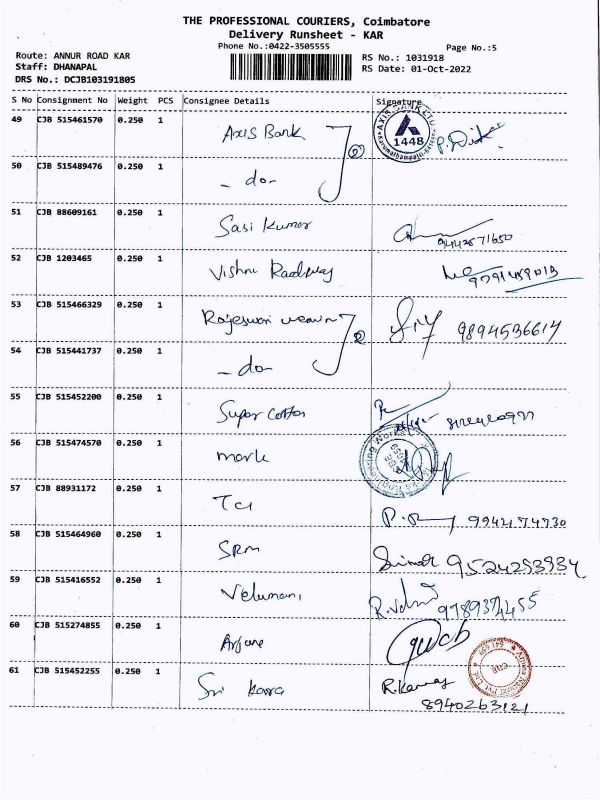 THE PROFESSIONAL COURIERS, Coimbatore
Delivery Runsheet - KAR
Phone No.:0422-3505555
Page No.:5
Route: ANNUR ROAD KAR
RS No.: 1031918
Staff: DHANAPAL
RS Date: 01-Oct-2022
DRS No.: DCJB103191805
S No Consignment No Weight PCS Consignee Details Signature
49 CJB 515461570 0.250 1 Axis Bank AXIS BANK LTD 1448
50 CJB 515489476 0.250 1 - do - 2
51 CJB 88609161 0.250 1 Sasi Kumar
52 CJB 1203465 0.250 1 Vishnu
53 CJB 515466329 0.250 1 Rajeswari 9894536614
54 CJB 515441737 0.250 1 - do - 2
55 CJB 515452200 0.250 1 Super Cotton
56 CJB 515474570 0.250 1 mark
57 CJB 88931172 0.250 1 TCI
58 CJB 515464960 0.250 1 SRM 9524293934
59 CJB 515416552 0.250 1 Velumani
60 CJB 515274855 0.250 1
61 CJB 515452255 0.250 1 Sri R.Kannan
8940263121